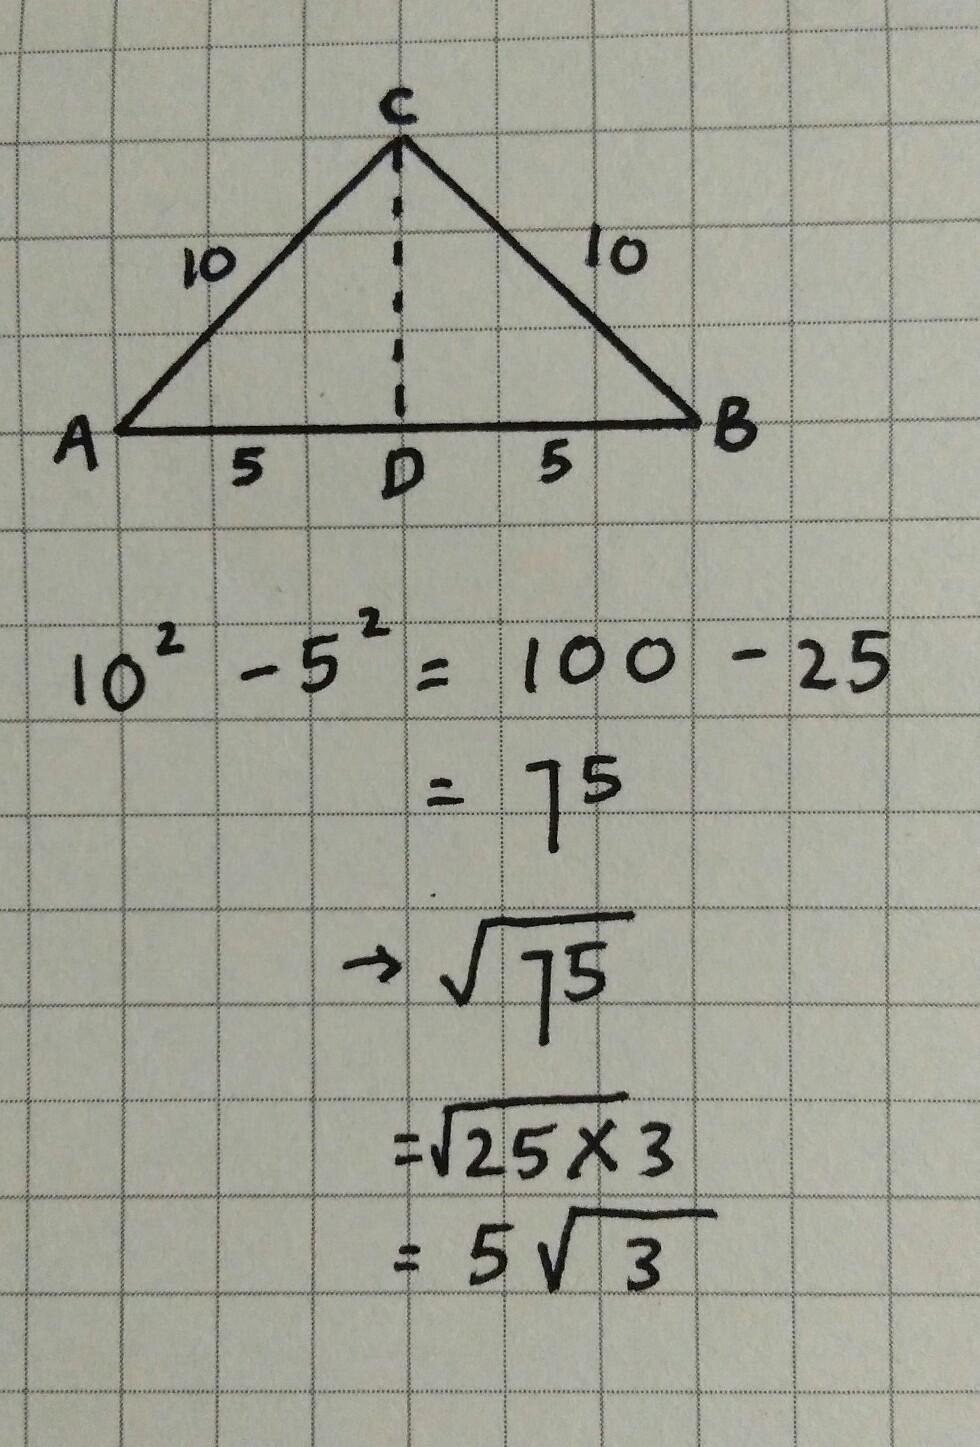 C
10 10
A B
5 D 5
10² - 5² = 100 - 25
= 75
→ √75
= √25 × 3
= 5 √3